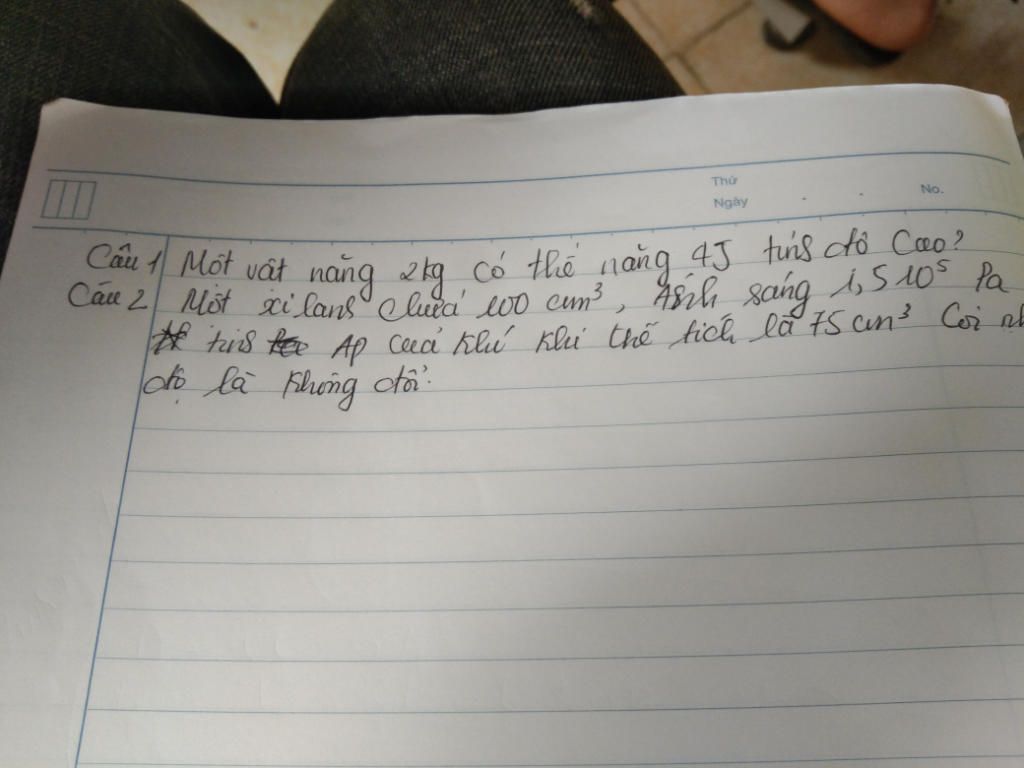 Thứ
Ngày . . No.
Câu 1 Một vật nặng 2kg có thế năng 4J tính độ Cao?
Câu 2 Một xi lanh chứa 100 cm³, Asih sáng 1,5 10⁵ Pa
tính Ap của khí khi thể tích là 75 cm³ Coi nh
độ là không đổi.